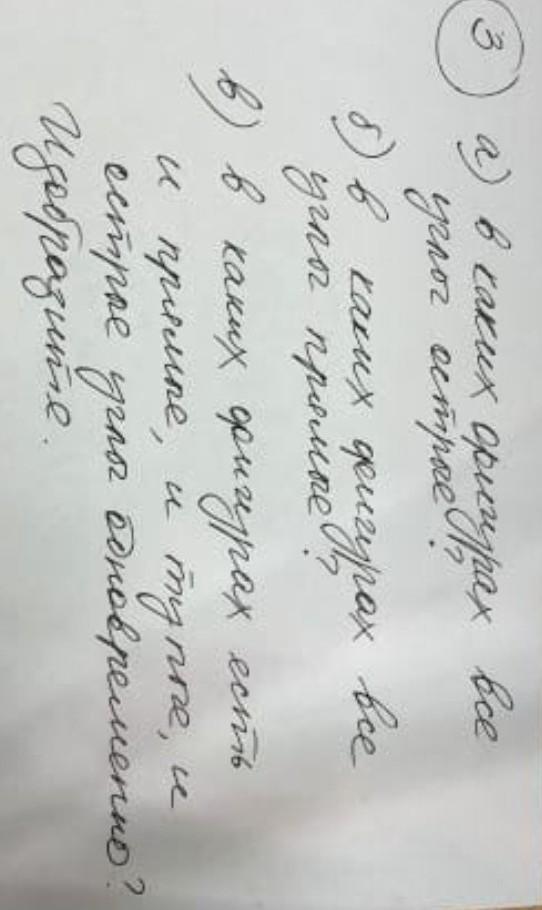 3 а) в каких фигурах все
углы острые?
б) в каких фигурах все
углы прямые?
в) в каких фигурах есть
и прямые, и тупые, и
острые углы одновременно?
Изобразите.